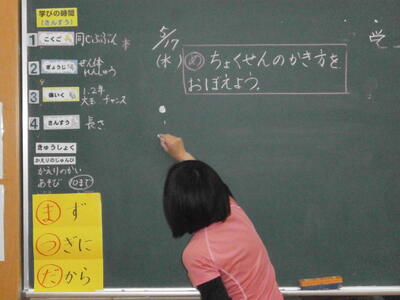 学びの時間
(さんすう)
1 こくご 同じぶぶん
2 ぎょうじ ぜん体
れんしゅう
3 体いく 1.2年
大玉 チャンス
4 さんすう 長さ
きゅうしょく
かえりのじゅんび
かえりのかい
あそび ○まで
まず
つぎに
だから
5/17
(水)
め ちょくせんのかき方を
おぼえよう。
学